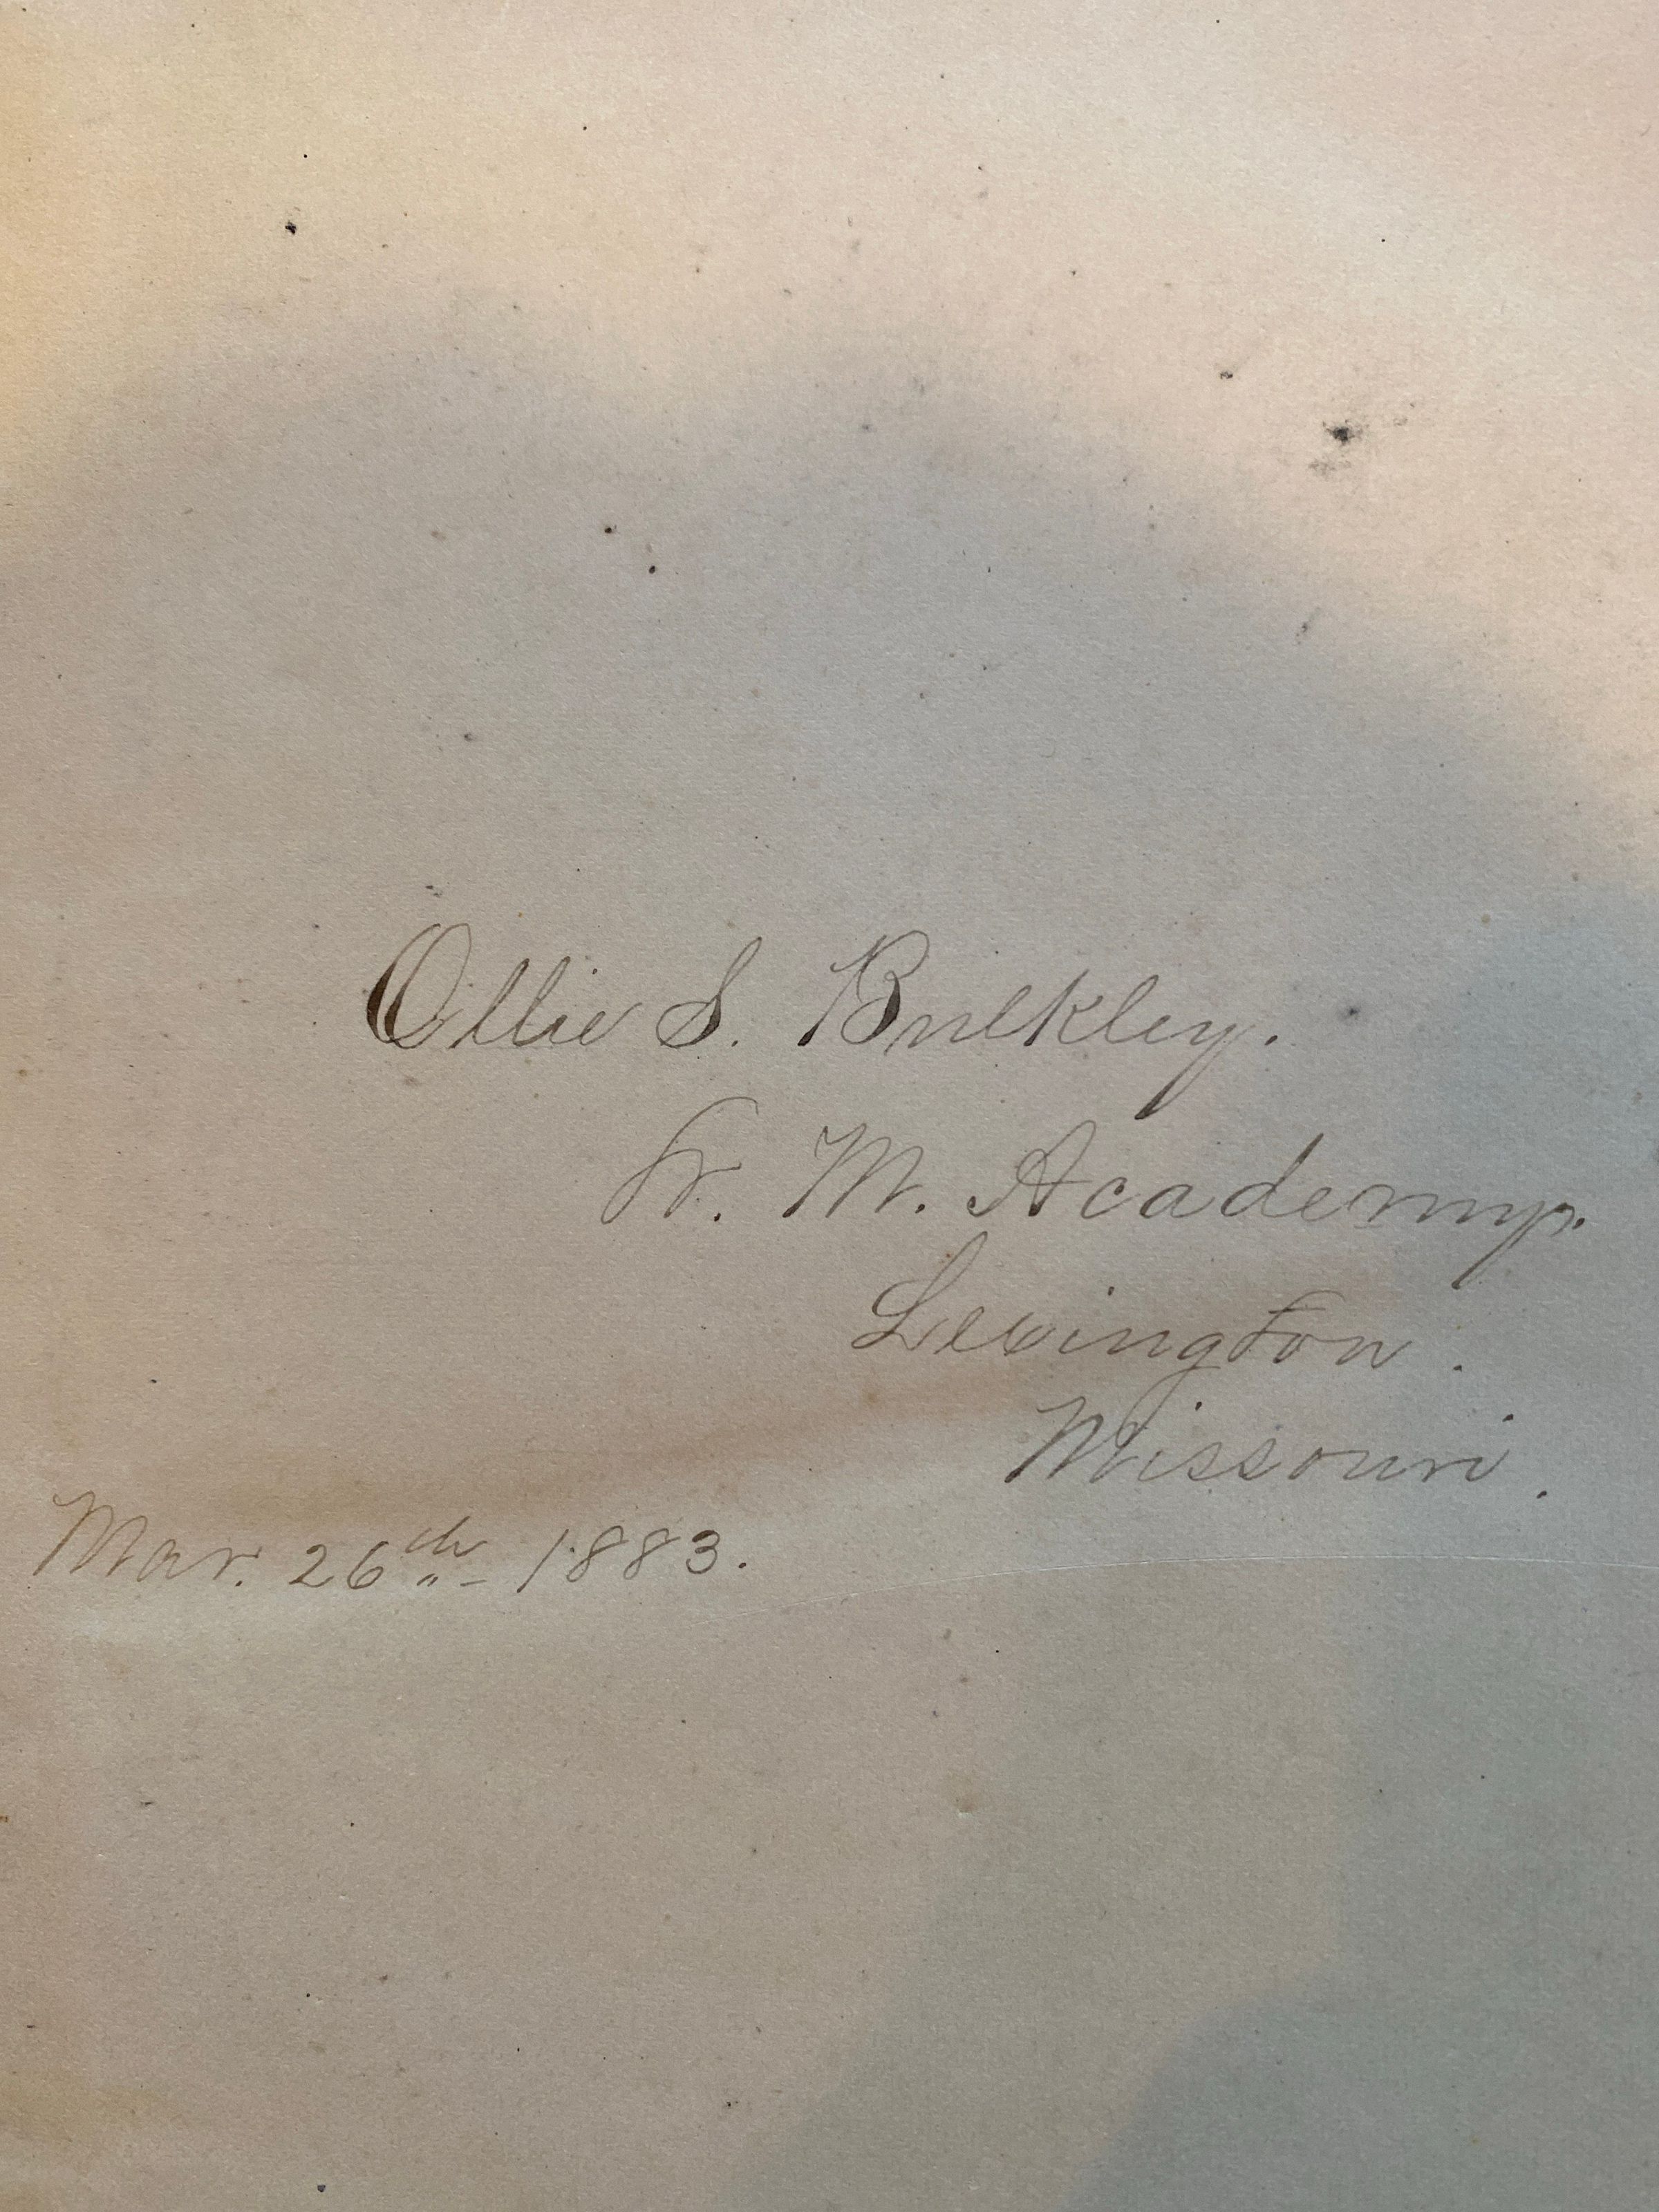 Ollie S. Bulkley.
W. M. Academy.
Lexington.
Missouri.
Mar. 26th 1883.